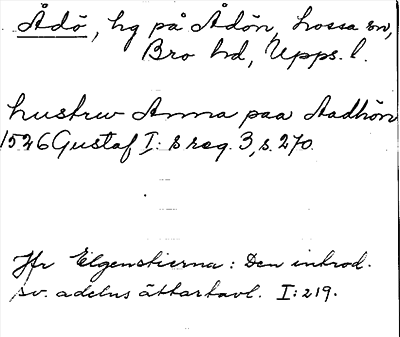 Ådö, hg på Ådön, Lossa sn,
Bro hd, Upps. l.
hustrw Anna paa Aadhön
1526 Gustaf I: s reg. 3, s. 270.
Jfr Elgenstierna: Den introd.
sv. adelns ättartavl. I: 219.